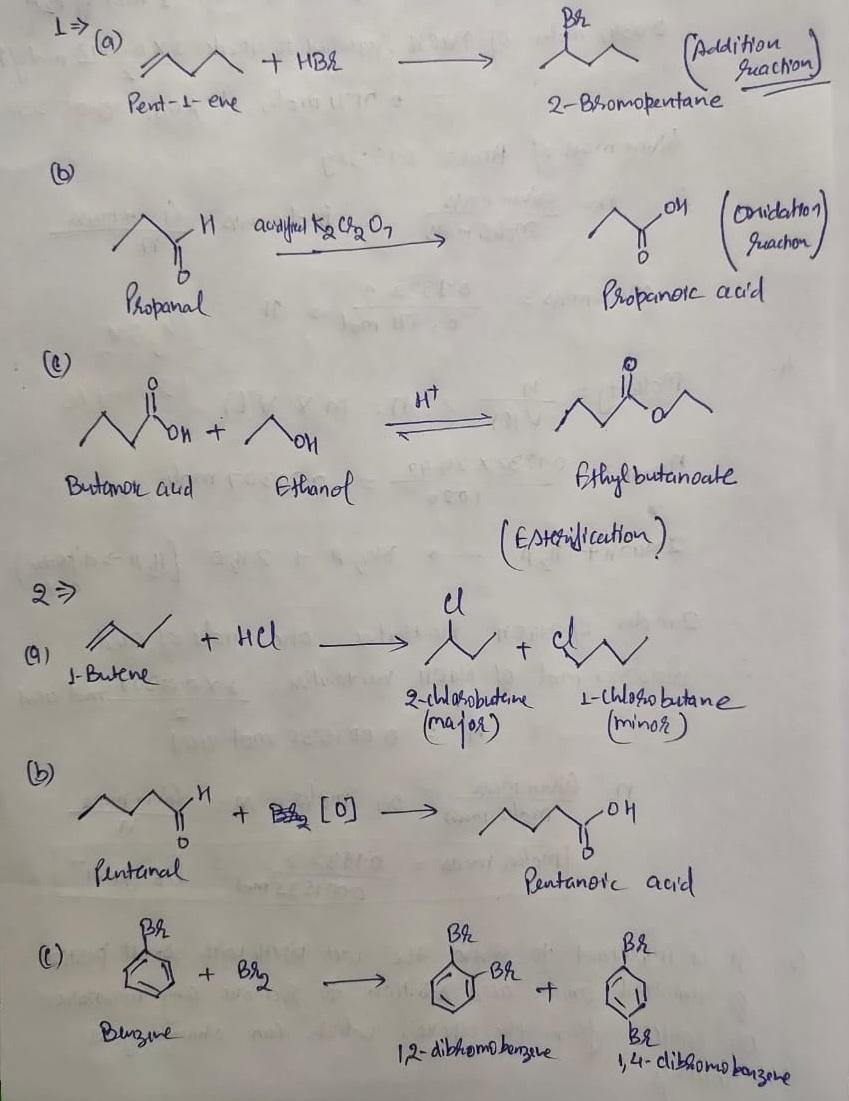 1⇒ (a) + HBr ⟶ Br (Addition reaction)
Pent-1-ene 2-Bromopentane
(b)
H O acidified K2Cr2O7 ⟶ OH O (Oxidation reaction)
Propanal Propanoic acid
(c)
O OH + OH H+ ⇌ O O
Butanoic acid Ethanol Ethylbutanoate
(Esterification)
2⇒
(a) + HCl ⟶ Cl + Cl
1-Butene 2-chlorobutane 1-chlorobutane
(major) (minor)
(b)
H O + [O] ⟶ OH O
Pentanal Pentanoic acid
(c) Br + Br2 ⟶ Br Br + Br Br
Benzene 1,2-dibromobenzene 1,4-dibromobenzene